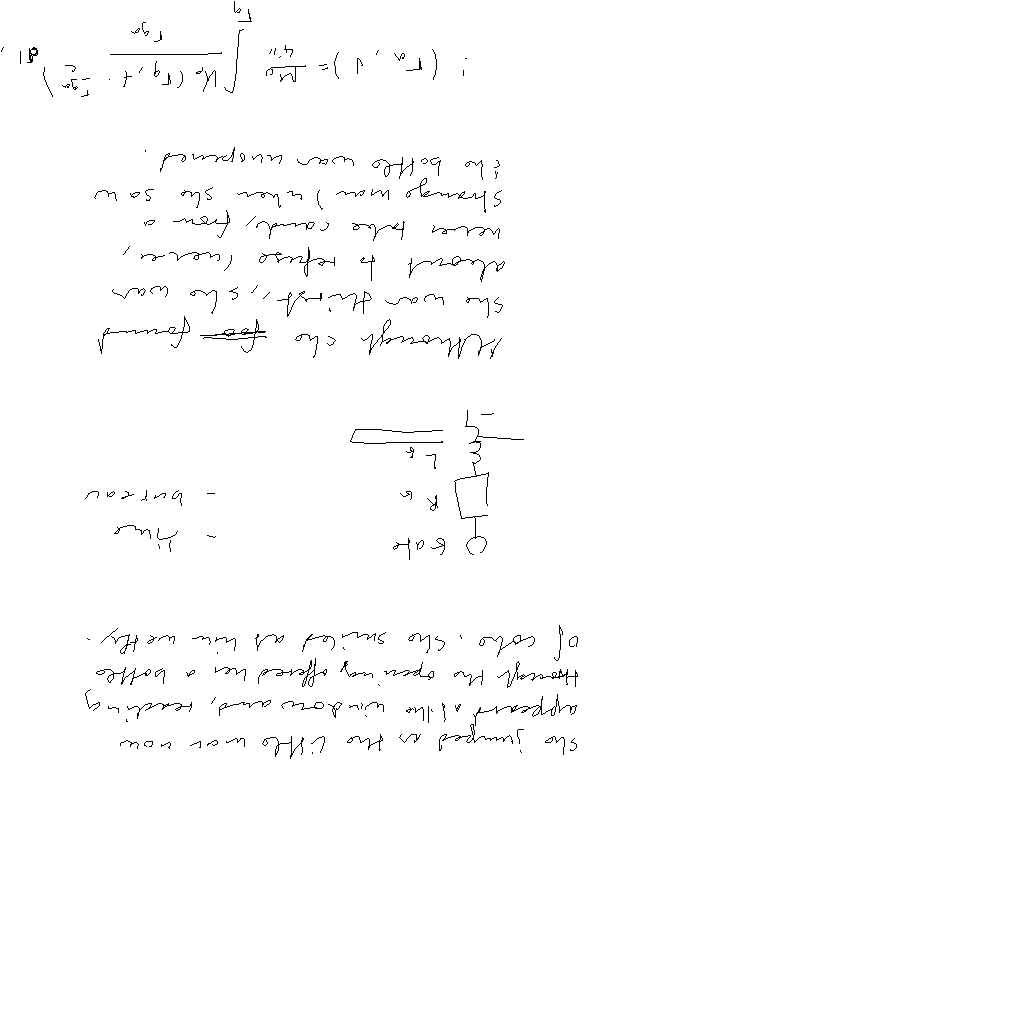 She jumped as the little man now
appeared at the window and, reaching
through the opening offered her a bottle
of coke. She smiled at him wetly.
Gate
- time
R_G
- bureau
L_G
Although she found
she was thirsty, she was
about to refuse (never,
never take candy from a
strange man) when she saw
the bottle was unopened.